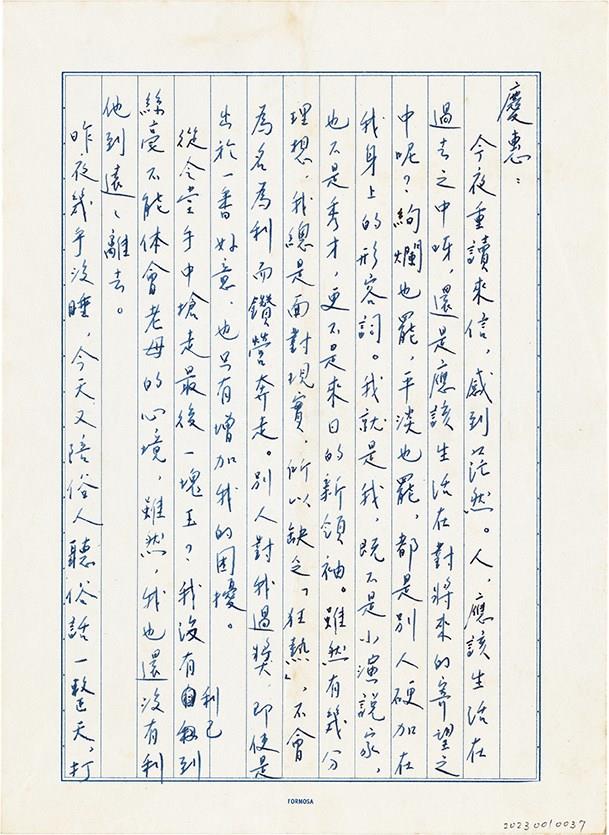 慶惠：
今夜重讀來信，感到茫然。人，應該生活在
過去之中呀，還是應該生活在對將來的寄望之
中呢？絢爛也罷，平淡也罷，都是別人硬加在
我身上的形容詞。我就是我，既不是小演說家，
也不是秀才，更不是來日的新領袖。雖然有幾分
理想，我總是面對現實，所以缺乏「狂熱」，不會
為名為利而鑽營奔走。別人對我過獎，即使是
出於一番好意，也只有增加我的困擾。
從令堂手中搶走最後一塊玉？我沒有利己到
絲毫不能体會老母的心境，雖然，我也還沒有利
他到遠〻離去。
昨夜幾乎沒睡，今天又陪俗人聽俗話一整天，打
FORMOSA
20230010037